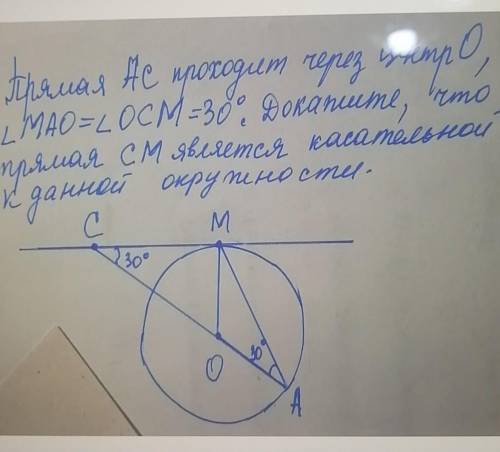 Прямая АС проходит через центр О,
∠МАО=∠ОСМ=30°. Докажите, что
прямая СМ является касательной
к данной окружности.
С М
30°
30°
О
А